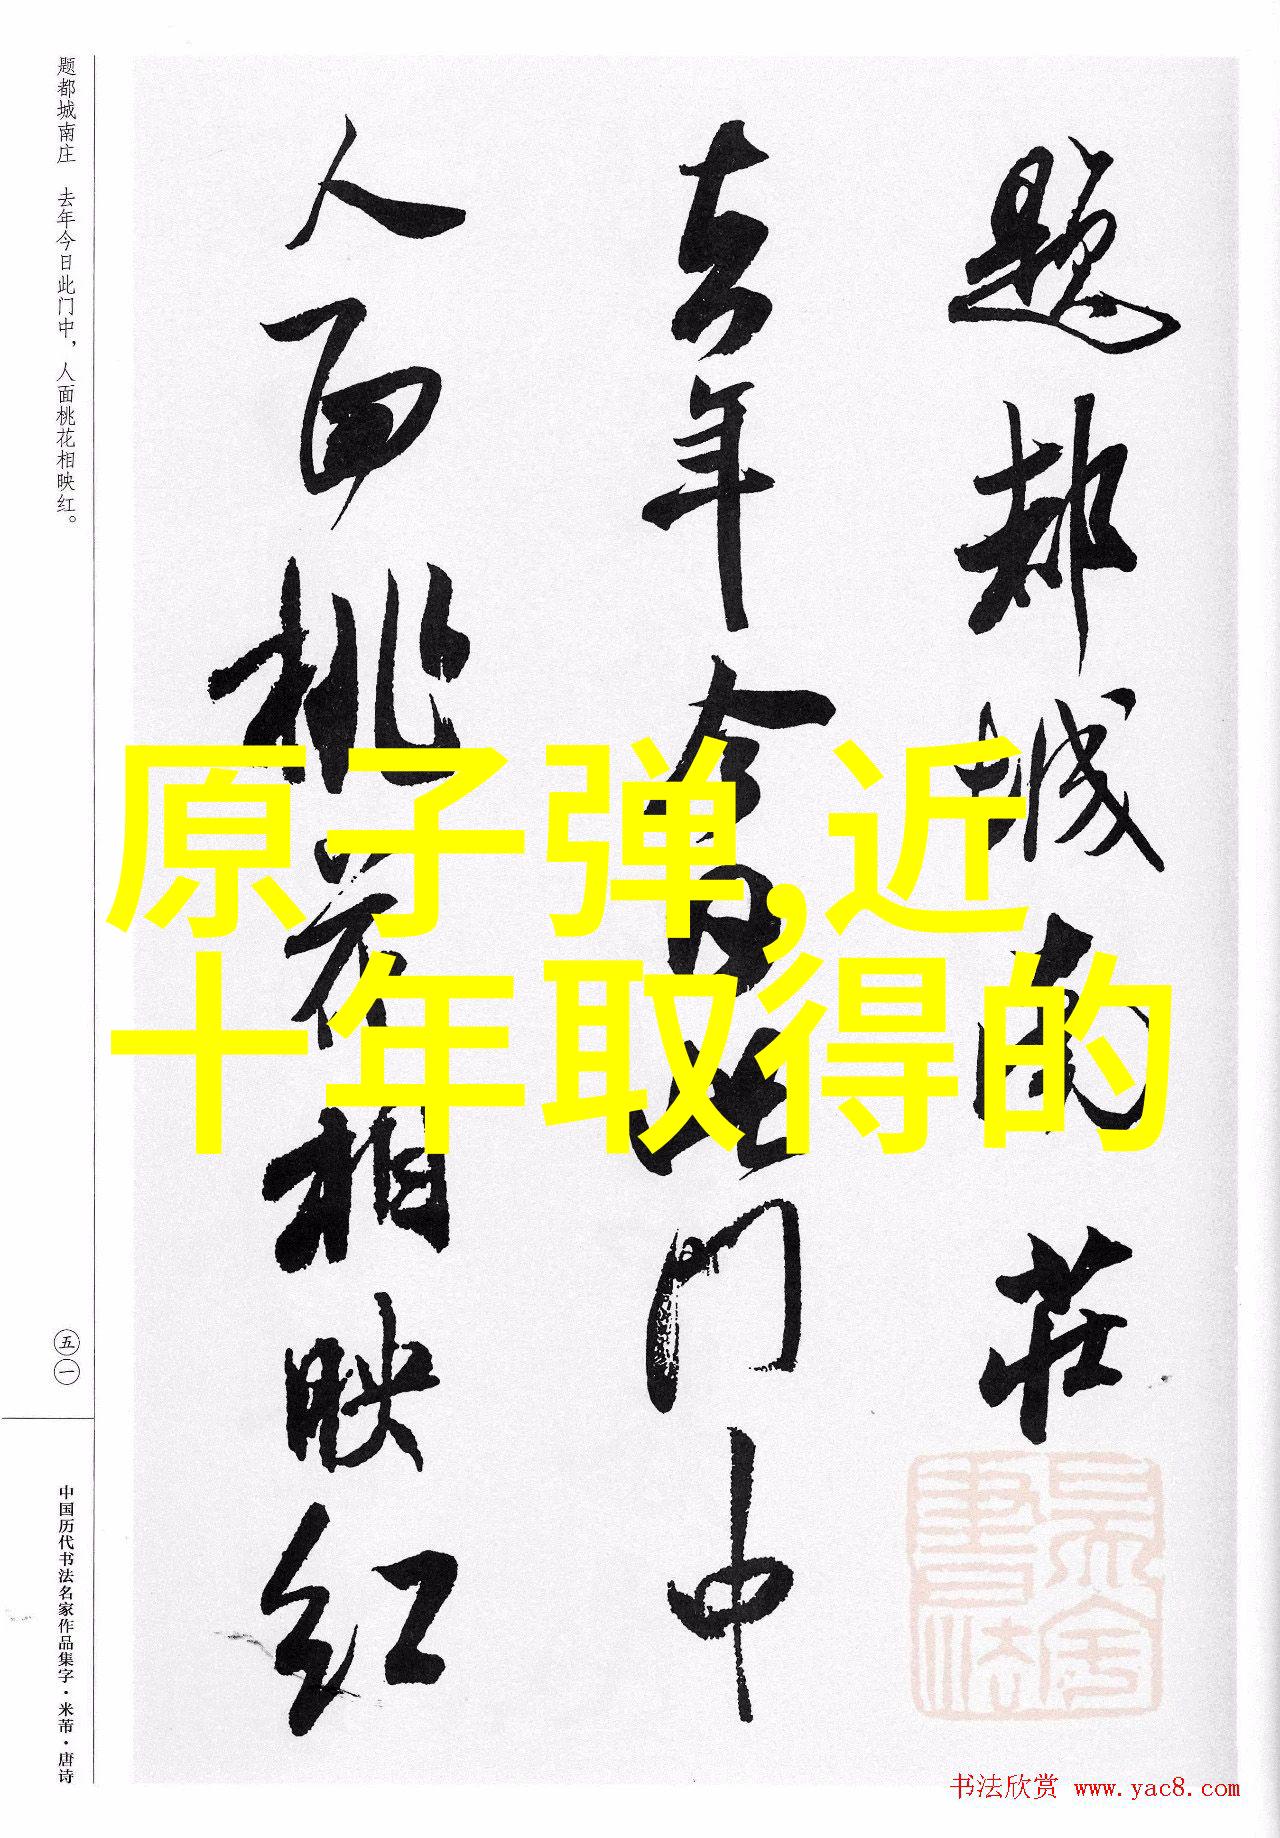 题都城南庄 去年今日此门中，人面桃花相映红。
題都城南莊
去年今日此門中
人面桃花相映红
原子弹,近
十年取得的
五一
中国历代书法名家作品集字·米芾·唐诗
吴舍書法
书法欣赏 www.yac8.com